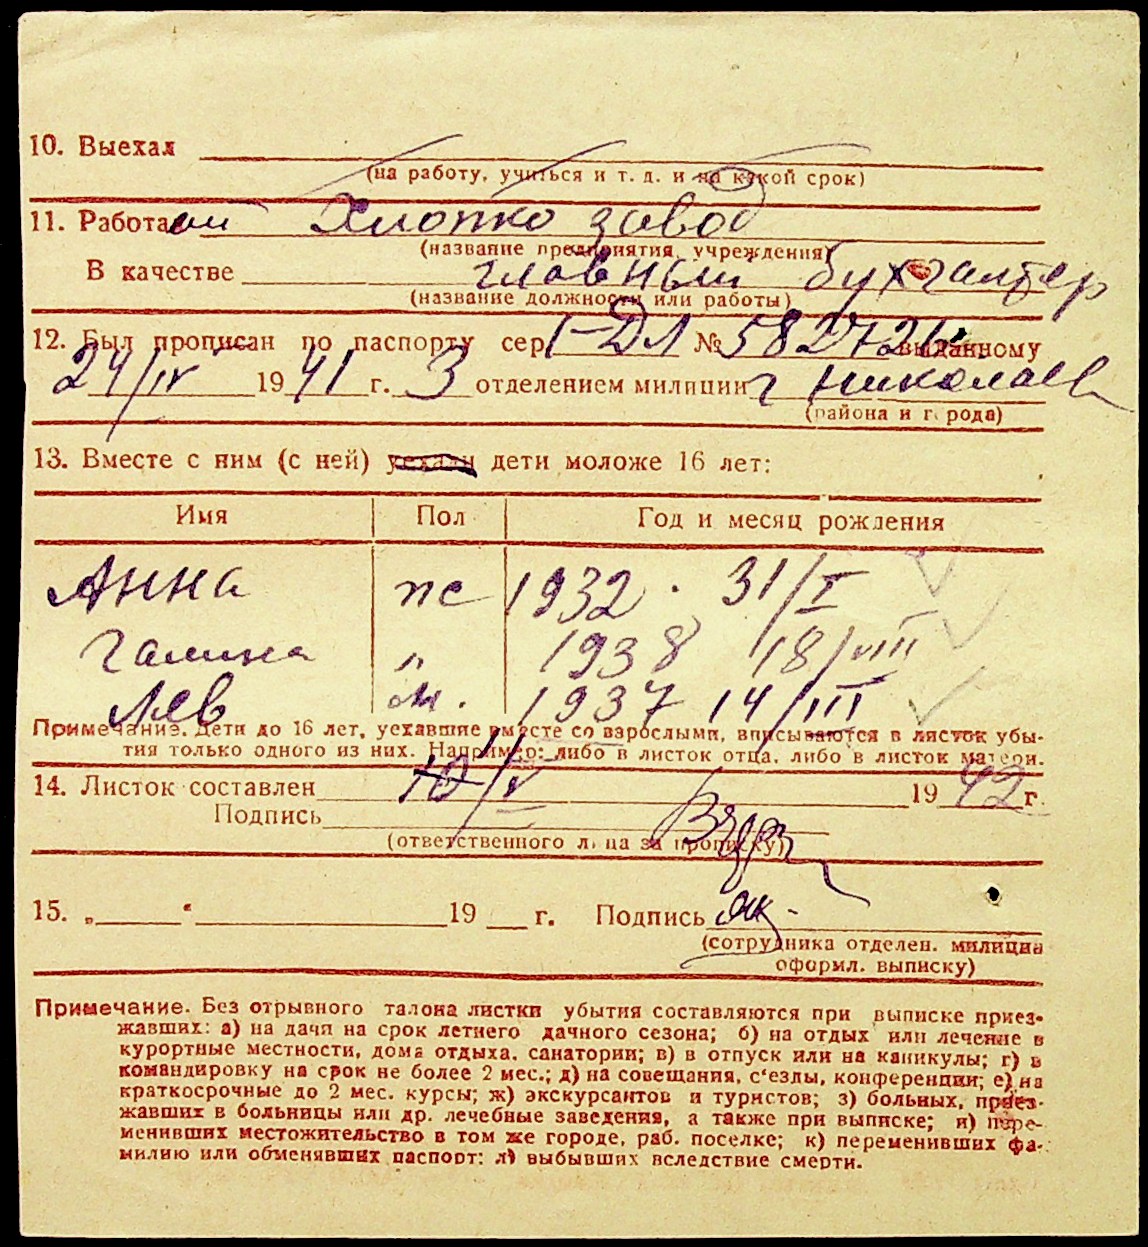 10. Выехал
(на работу, учиться и т. д. и на какой срок)
11. Работает Хлопко завод
(название предприятия, учреждения)
В качестве главный бухгалтер
(название должности или работы)
12. Был прописан по паспорту сер. I-ДЛ № 582726 выданному
24/IV 1941 г. 3 отделением милиции г Николаев
(района и города)
13. Вместе с ним (с ней) уехали дети моложе 16 лет:
Имя Пол Год и месяц рождения
Анна ж 1932 . 31/I
Галина „ 1938 18/VIII
Лев м. 1937 14/III
Примечание. Дети до 16 лет, уехавшие вместе со взрослыми, вписываются в листок убы-
тия только одного из них. Например: либо в листок отца, либо в листок матери.
14. Листок составлен 10/V 1942 г.
Подпись
(ответственного лица за прописку)
15. „ “ 19 г. Подпись
(сотрудника отделен. милиции
оформл. выписку)
Примечание. Без отрывного талона листки убытия составляются при выписке приез-
жавших: а) на дачи на срок летнего дачного сезона; б) на отдых или лечение в
курортные местности, дома отдыха, санатории; в) в отпуск или на каникулы; г) в
командировку на срок не более 2 мес.; д) на совещания, с'езды, конференции; е) на
краткосрочные до 2 мес. курсы; ж) экскурсантов и туристов; з) больных, приез-
жавших в больницы или др. лечебные заведения, а также при выписке; и) пере-
менивших местожительство в том же городе, раб. поселке; к) переменивших фа-
милию или обменявших паспорт; л) выбывших вследствие смерти.